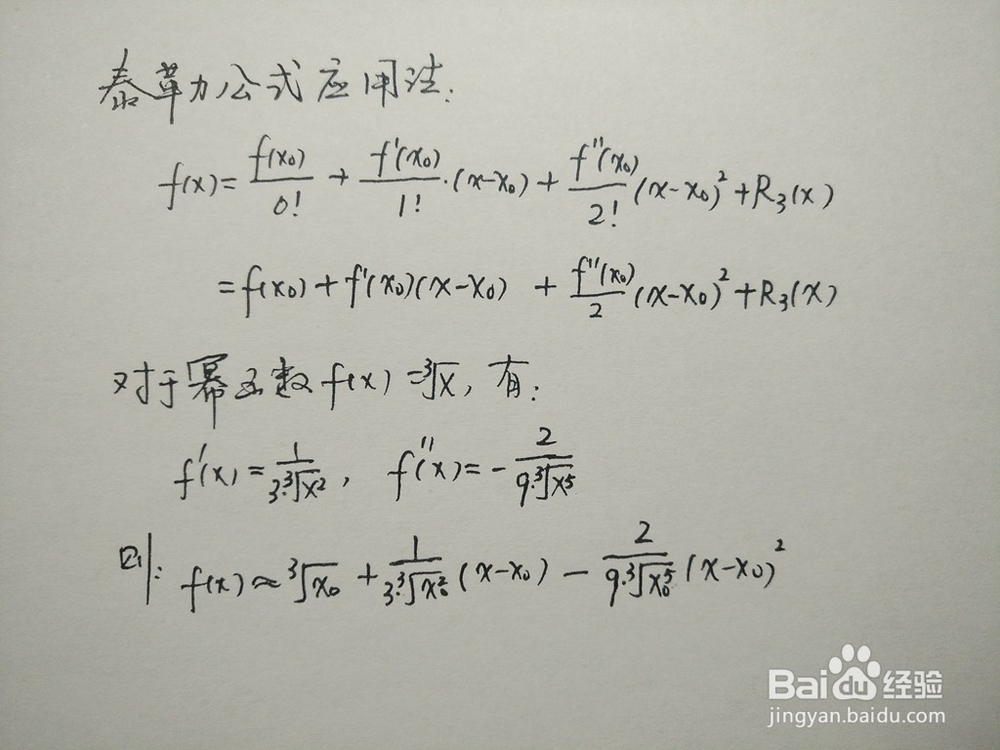 泰革力公式应用法:
f(x)=f(x₀)/0! + f'(x₀)/1!·(x-x₀)+f''(x₀)/2!(x-x₀)²+R₃(x)
=f(x₀)+f'(x₀)(x-x₀) + f''(x₀)/2(x-x₀)²+R₃(x)
对于幂函数f(x)=³√x, 有:
f'(x)=1/(3·³√x²), f''(x)=-2/(9·³√x⁵)
则: f(x)≈³√x₀+1/(3·³√x₀²)(x-x₀)-2/(9·³√x₀⁵)(x-x₀)²
Baidu经验
jingyan.baidu.com